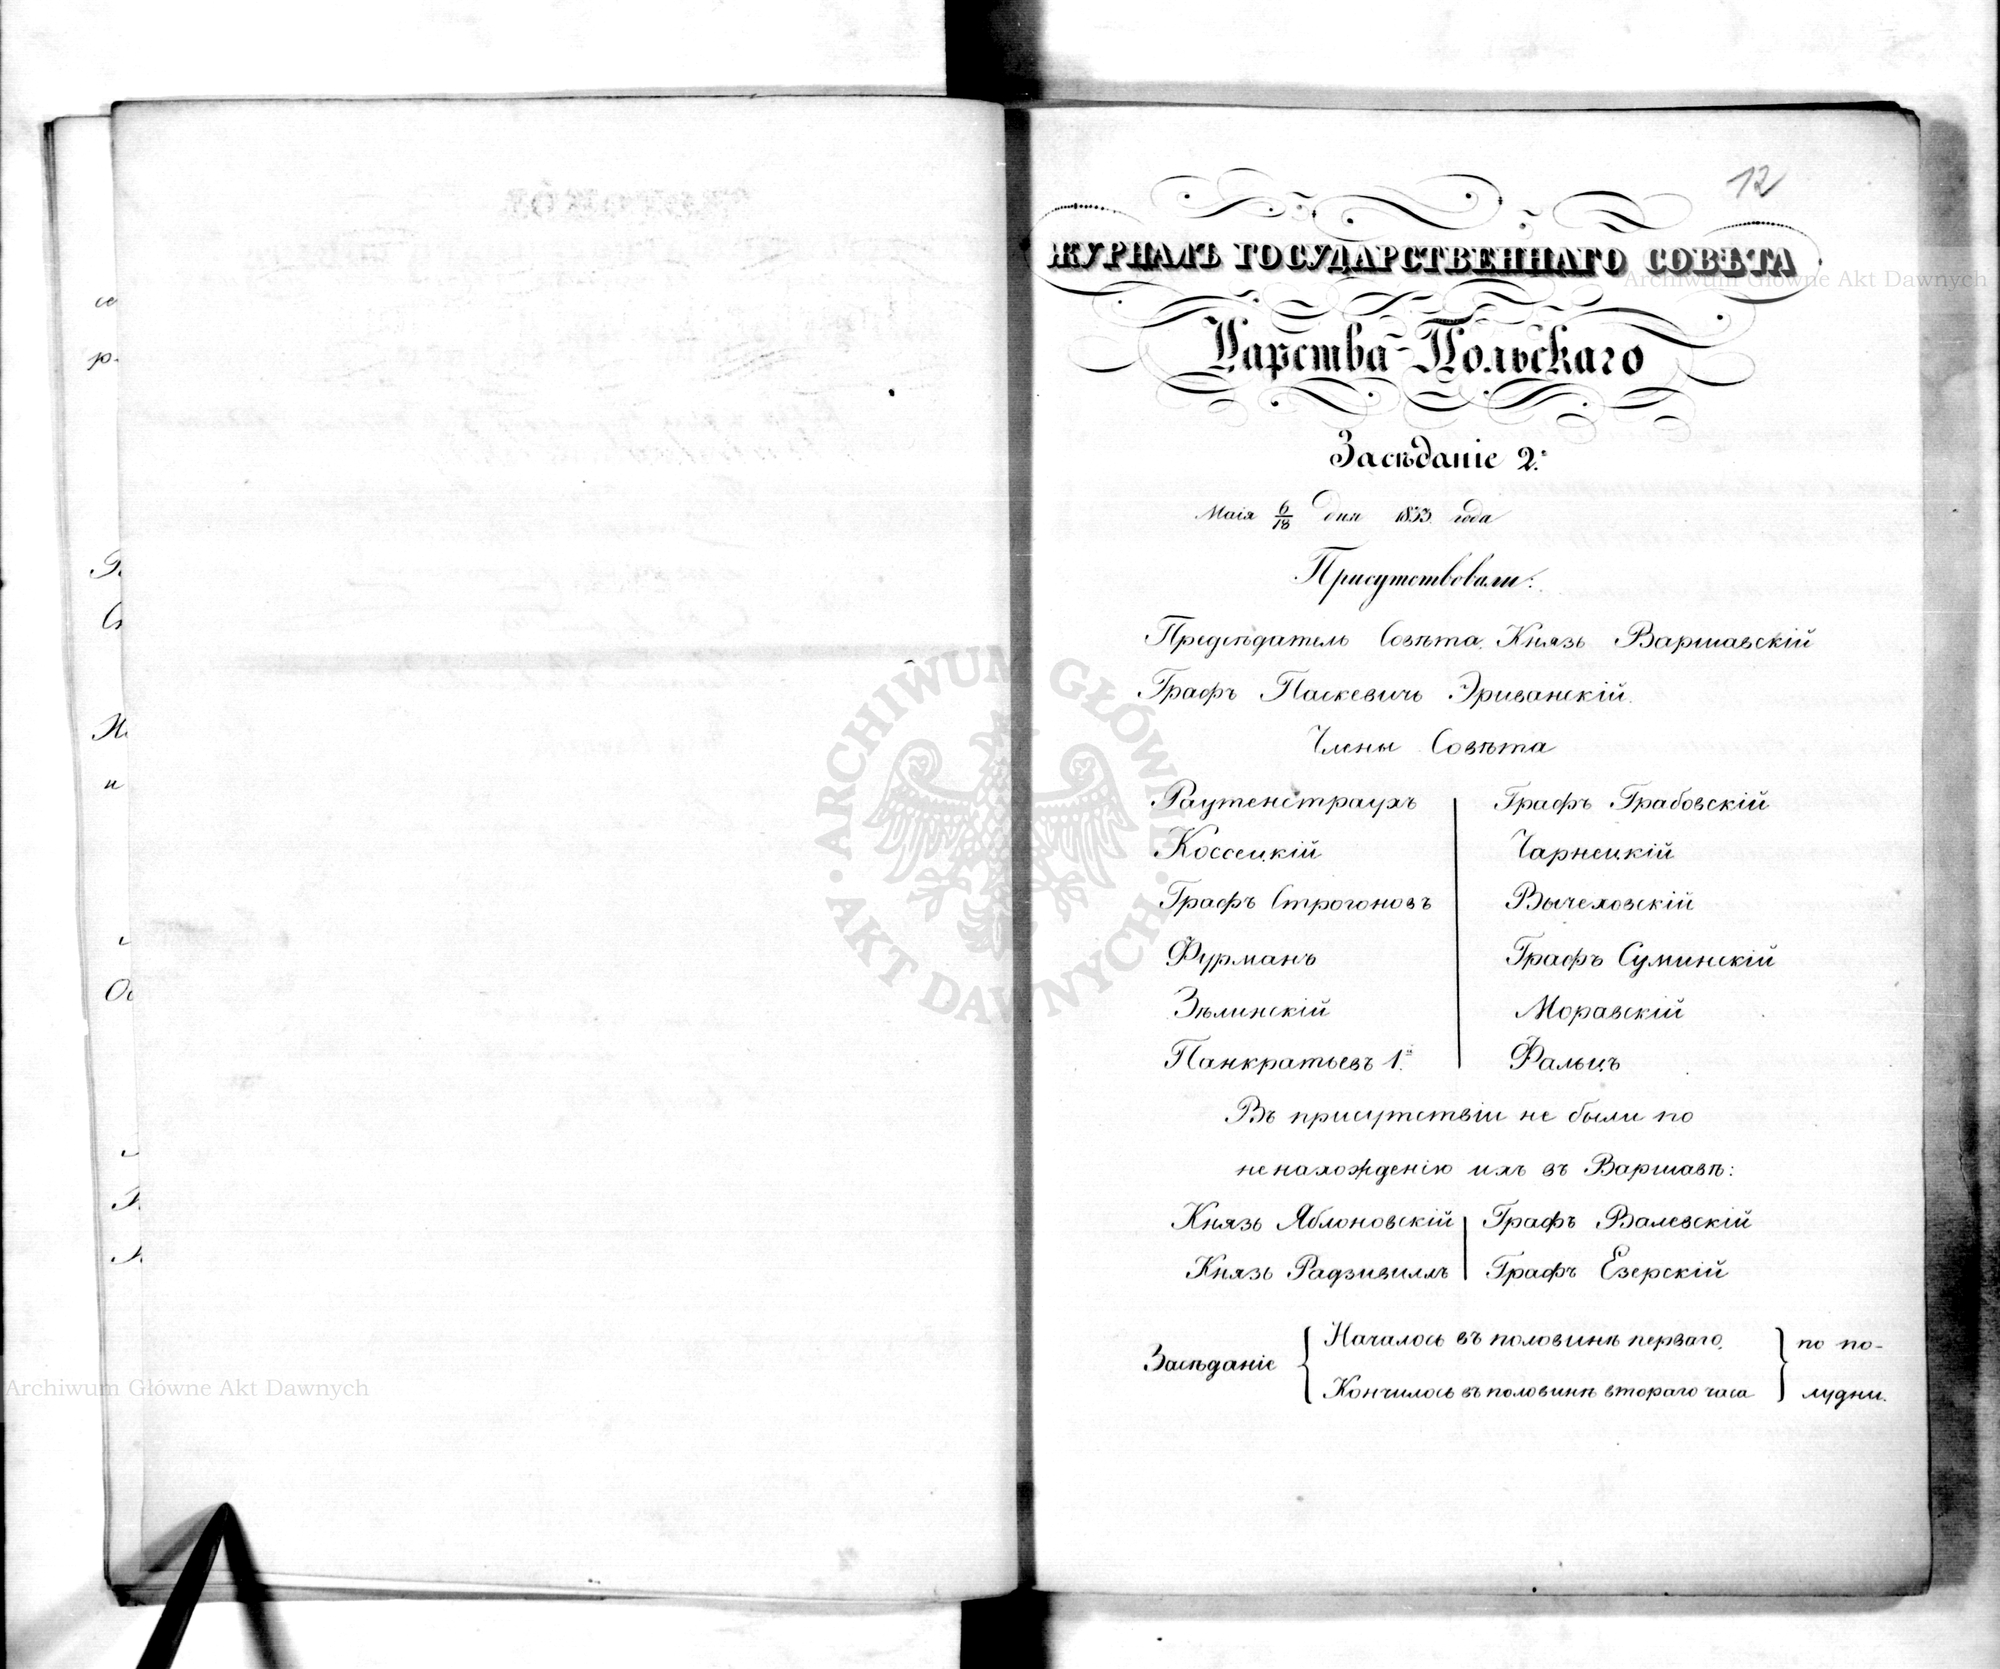 12
ЖУРНАЛЪ ГОСУДАРСТВЕННАГО СОВѢТА
Царства Польскаго
Засѣданіе 2.е
Маія 6/18 дня 1833 года
Присутствовали:
Предсѣдатель Совѣта, Князь Варшавскій
Графъ Паскевичь Эриванскій.
Члены Совѣта
Раутенстраухъ
Коссецкій
Графъ Строгоновъ
Фурманъ
Зѣлинскій
Панкратьевъ 1.й
Графъ Грабовскій
Чарнецкій
Вычеховскій
Графъ Суминскій
Моравскій
Фальцъ
Въ присутствіи не были по
не нахожденію ихъ въ Варшавѣ:
Князь Яблоновскій
Князь Радзивиллъ
Графъ Валевскій
Графъ Езерскій
Засѣданіе
Началось въ половинѣ перваго,
Кончилось въ половинѣ втораго часа
по по-
лудни.
Archiwum Główne Akt Dawnych
ARCHIWUM GŁÓWNE AKT DAWNYCH
Archiwum Główne Akt Dawnych